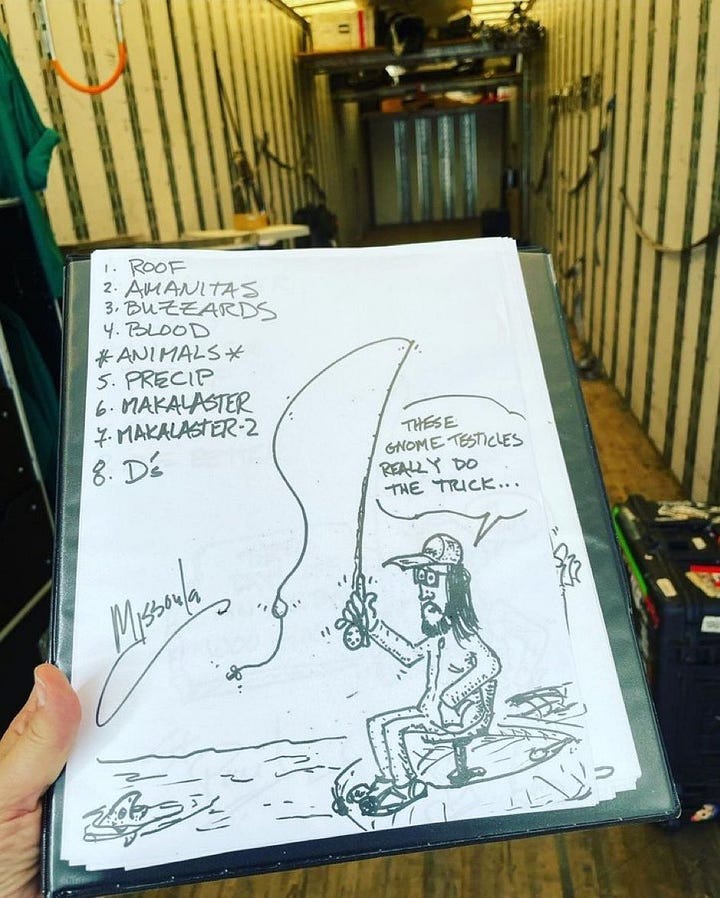 1. ROOF
2. AMANITAS
3. BUZZARDS
4. BLOOD
* ANIMALS *
5. PRECIP
6. MAKALASTER
7. MAKALASTER-2
8. D's
THESE
GNOME TESTICLES
REALLY DO
THE TRICK...
Missoula